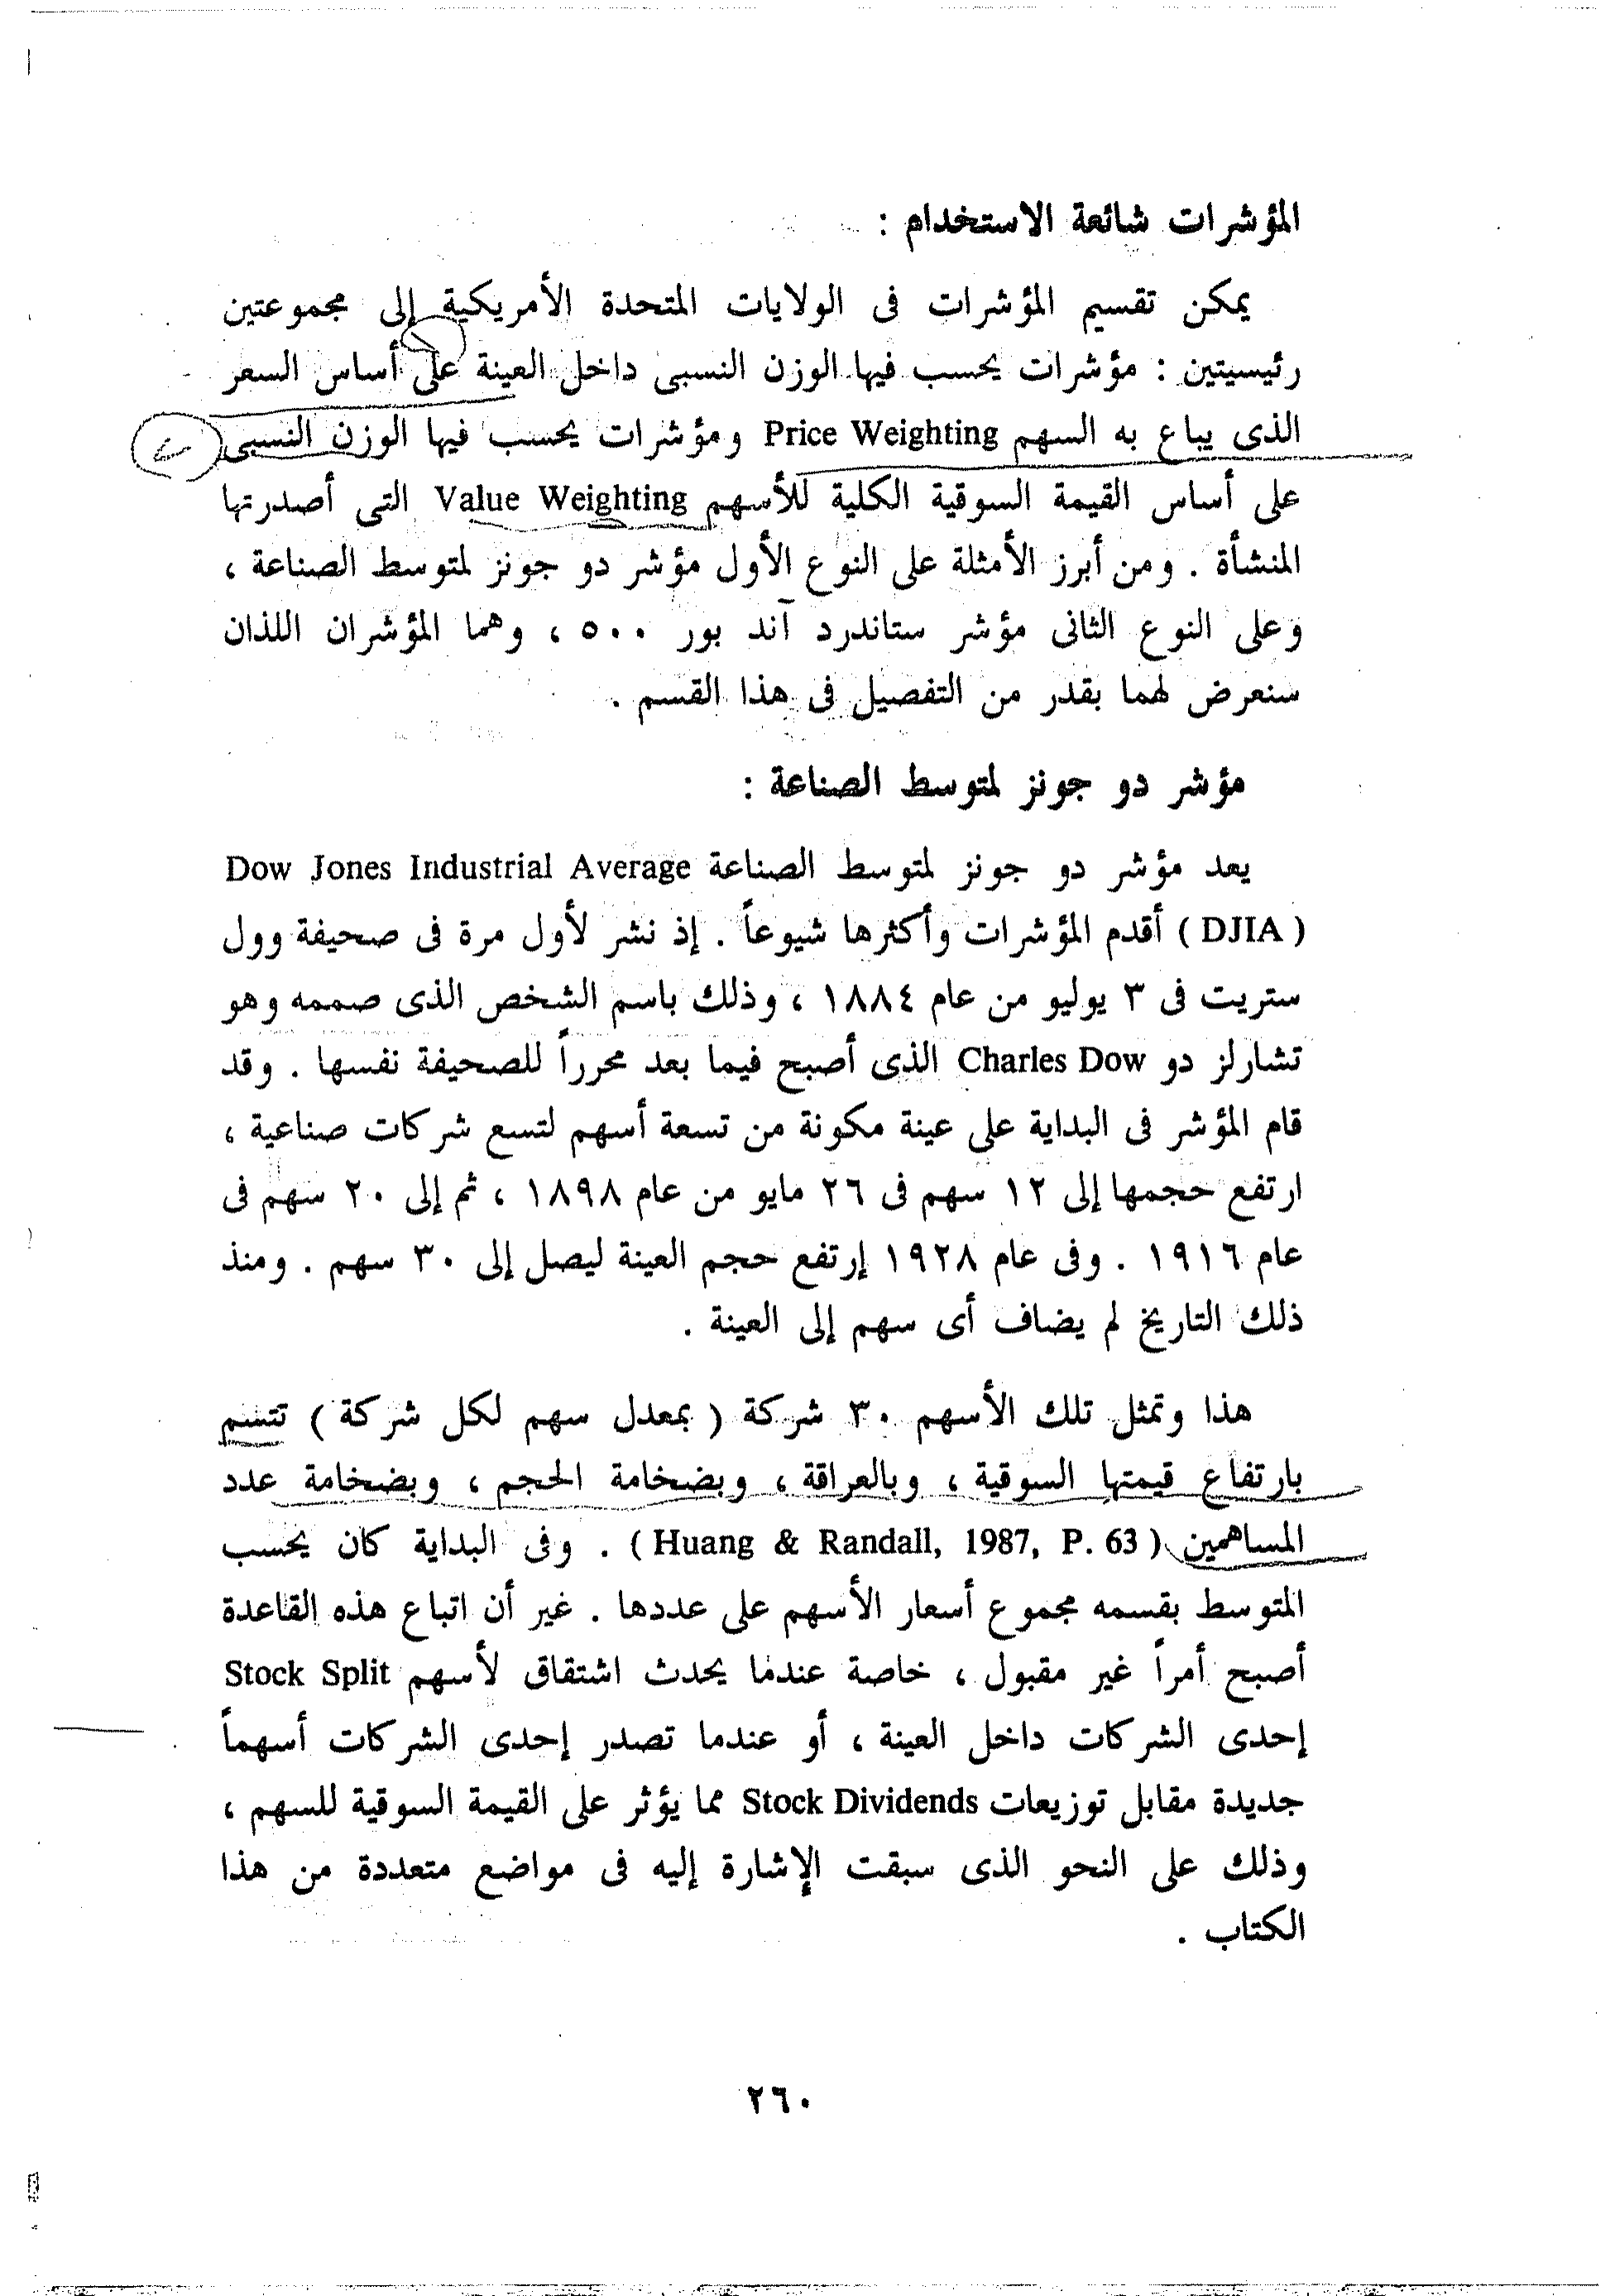 المؤشرات شائعة الاستخدام :
يمكن تقسيم المؤشرات فى الولايات المتحدة الأمريكية إلى مجموعتين
رئيسيتين : مؤشرات يحسب فيها الوزن النسبى داخل العينة على أساس السعر
الذى يباع به السهم Price Weighting ومؤشرات يحسب فيها الوزن النسبى
على أساس القيمة السوقية الكلية للأسهم Value Weighting التى أصدرتها
المنشأة . ومن أبرز الأمثلة على النوع الأول مؤشر دو جونز لمتوسط الصناعة ،
وعلى النوع الثانى مؤشر ستاندرد آند بور ٥٠٠ ، وهما المؤشران اللذان
سنعرض لهما بقدر من التفصيل فى هذا القسم .
مؤشر دو جونز لمتوسط الصناعة :
يعد مؤشر دو جونز لمتوسط الصناعة Dow Jones Industrial Average
( DJIA ) أقدم المؤشرات وأكثرها شيوعاً . إذ نشر لأول مرة فى صحيفة وول
ستريت فى ٣ يوليو من عام ١٨٨٤ ، وذلك باسم الشخص الذى صممه وهو
تشارلز دو Charles Dow الذى أصبح فيما بعد محرراً للصحيفة نفسها . وقد
قام المؤشر فى البداية على عينة مكونة من تسعة أسهم لتسع شركات صناعية ،
ارتفع حجمها إلى ١٢ سهم فى ٢٦ مايو من عام ١٨٩٨ ، ثم إلى ٢٠ سهم فى
عام ١٩١٦ . وفى عام ١٩٢٨ إرتفع حجم العينة ليصل إلى ٣٠ سهم . ومنذ
ذلك التاريخ لم يضاف أى سهم إلى العينة .
هذا وتمثل تلك الأسهم ٣٠ شركة ( بمعدل سهم لكل شركة ) تتسم
بارتفاع قيمتها السوقية ، وبالعراقة ، وبضخامة الحجم ، وبضخامة عدد
المساهمين ( Huang & Randall, 1987, P. 63 ) . وفى البداية كان يحسب
المتوسط بقسمه مجموع أسعار الأسهم على عددها . غير أن اتباع هذه القاعدة
أصبح أمراً غير مقبول ، خاصة عندما يحدث اشتقاق لأسهم Stock Split
إحدى الشركات داخل العينة ، أو عندما تصدر إحدى الشركات أسهماً
جديدة مقابل توزيعات Stock Dividends مما يؤثر على القيمة السوقية للسهم ،
وذلك على النحو الذى سبقت الإشارة إليه فى مواضع متعددة من هذا
الكتاب .
٢٦٠